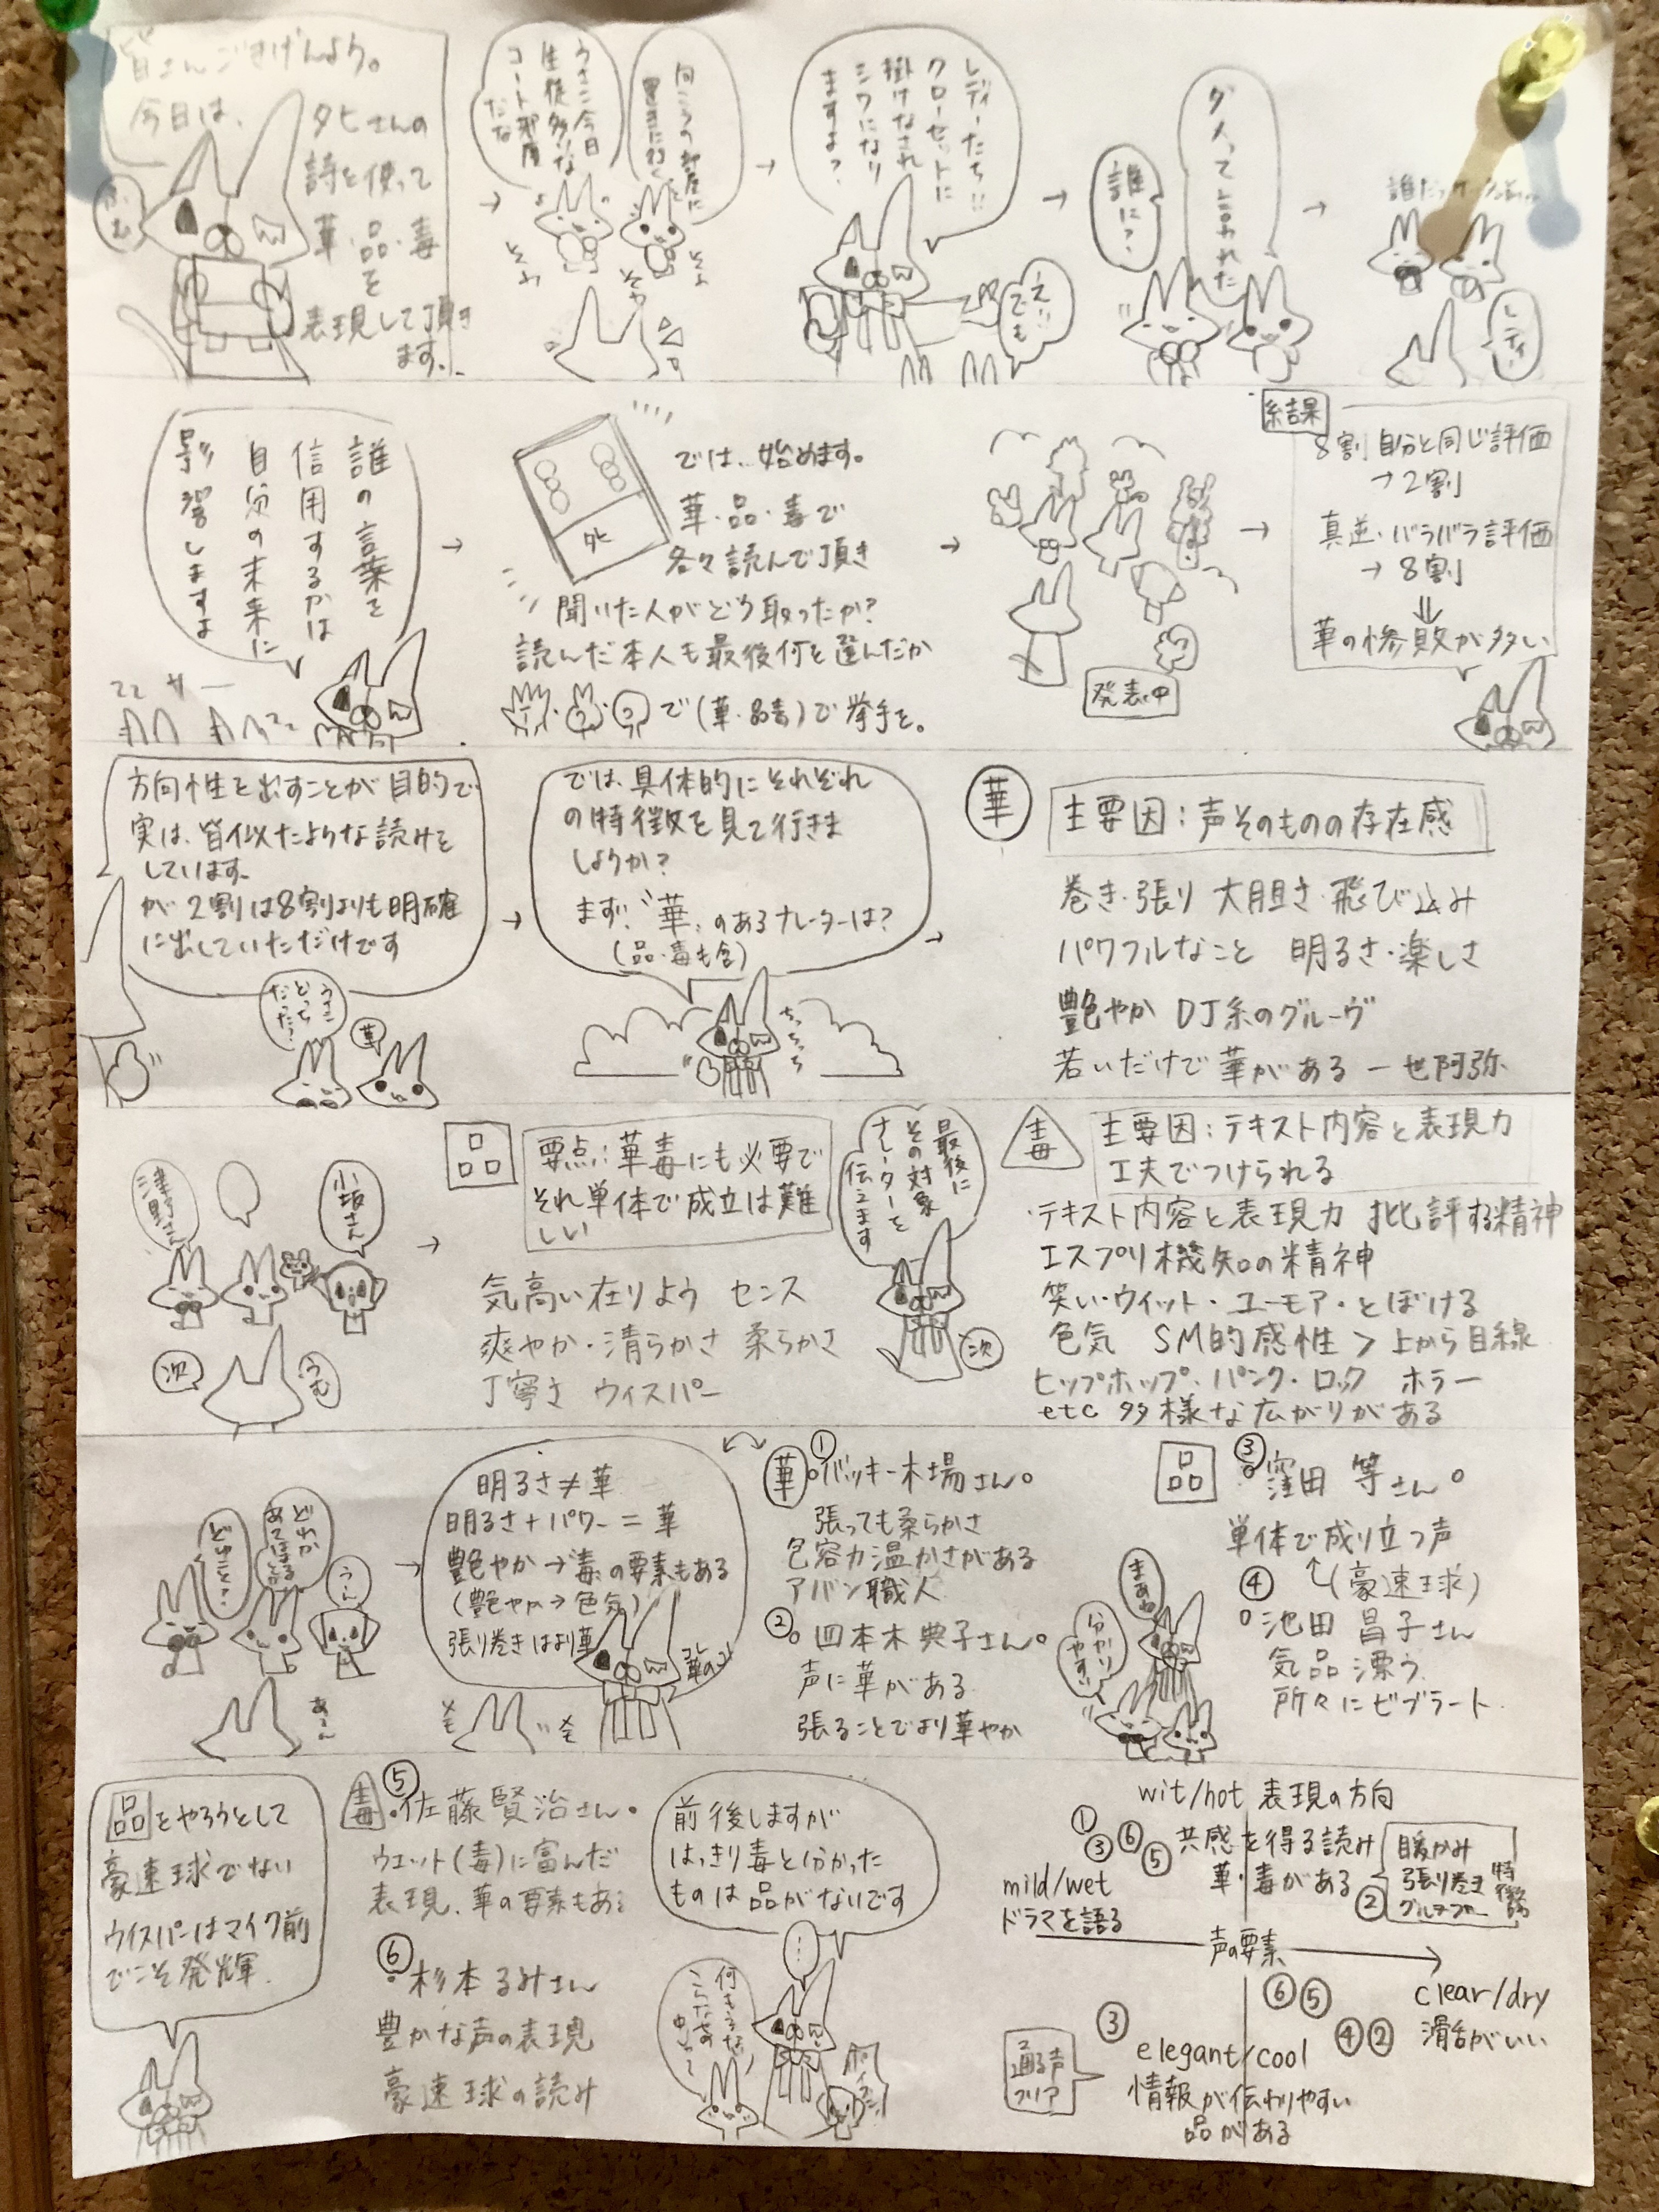 皆さんごきげんよう。
今日は、
タヒさんの
詩を使って
華・品・毒
を
表現して頂き
ます。
うさこ今日
生徒多いな
コート邪魔
だな
向こうの部屋に
置きに行く
そわ
そわ
そわ
レディーたち!!
クローゼットに
掛けなされ
シワになり
ますよ?
えい!!
でも
ダメって言われた
誰に?
誰だっけ
レディ!
誰の言葉を
信用するかは
自分の未来に
影響しますよ
では、始めます。
華・品・毒で
各々読んで頂き
聞いた人がどう取ったか?
読んだ本人も最後何を選んだか
で(華・品・毒)で挙手を。
発表中
結果
8割 自分と同じ評価
→2割
真逆・バラバラ評価
→8割
⇓
華の惨敗が多い
方向性を出すことが目的で
実は、皆似たような読みを
しています。
が2割は8割よりも明確
に出していただけです
うさこ
どっち
だった?
華
では、具体的にそれぞれ
の特徴を見て行きま
しょうか?
まず!“華”のあるナレーターは?
(品・毒も含)
ちっちっち
華
主要因:声そのものの存在感
巻き・張り 大胆さ・飛び込み
パワフルなこと 明るさ・楽しさ
艶やか DJ系のグルーヴ
若いだけで華がある ー世阿弥
小坂さん
次
うむ
品
要点:華毒にも必要で
それ単体で成立は難
しい
気高い在りよう センス
爽やか・清らかさ 柔らかさ
丁寧さ ウィスパー
最後に
その対象
ナレーターを
伝えます
次
毒
主要因:テキスト内容と表現力
工夫でつけられる
・テキスト内容と表現力 批評する精神
エスプリ 機知の精神
笑い・ウィット・ユーモア・とぼける
色気 SM的感性>上から目線
ヒップホップ・パンク・ロック ホラー
etc 多様な広がりがある
どれか
あてはまる
うーん
明るさ≠華
明るさ+パワー=華
艶やか→毒の要素もある
(艶やか→色気)
張り巻きはより華
華
①バッキー木場さん。
張っても柔らかさ
包容力温かさがある
アバン職人
②四本木典子さん。
声に華がある
張ることでより華やか
まあね
分かり
やすい
品
③窪田 等さん
単体で成り立つ声
↑(豪速球)
④池田 昌子さん
気品漂う
所々にビブラート
品をやろうとして
豪速球でない
ウィスパーはマイク前
でこそ発揮
毒
⑤佐藤賢治さん。
ウエット(毒)に富んだ
表現、華の要素もある
⑥杉本るみさん
豊かな声の表現
豪速球の読み
前後しますが
はっきり毒と分かった
ものは品がないです
…
wit/hot 表現の方向
① ③ ⑥ ⑤ 共感を得る読み
華・毒がある
②
暖かみ
張り巻き
特徴
mild/wet
ドラマを語る
声の要素
⑥⑤
④②
clear/dry
滑舌がいい
③
通る声
クリア
elegant/cool
情報が伝わりやすい
品がある